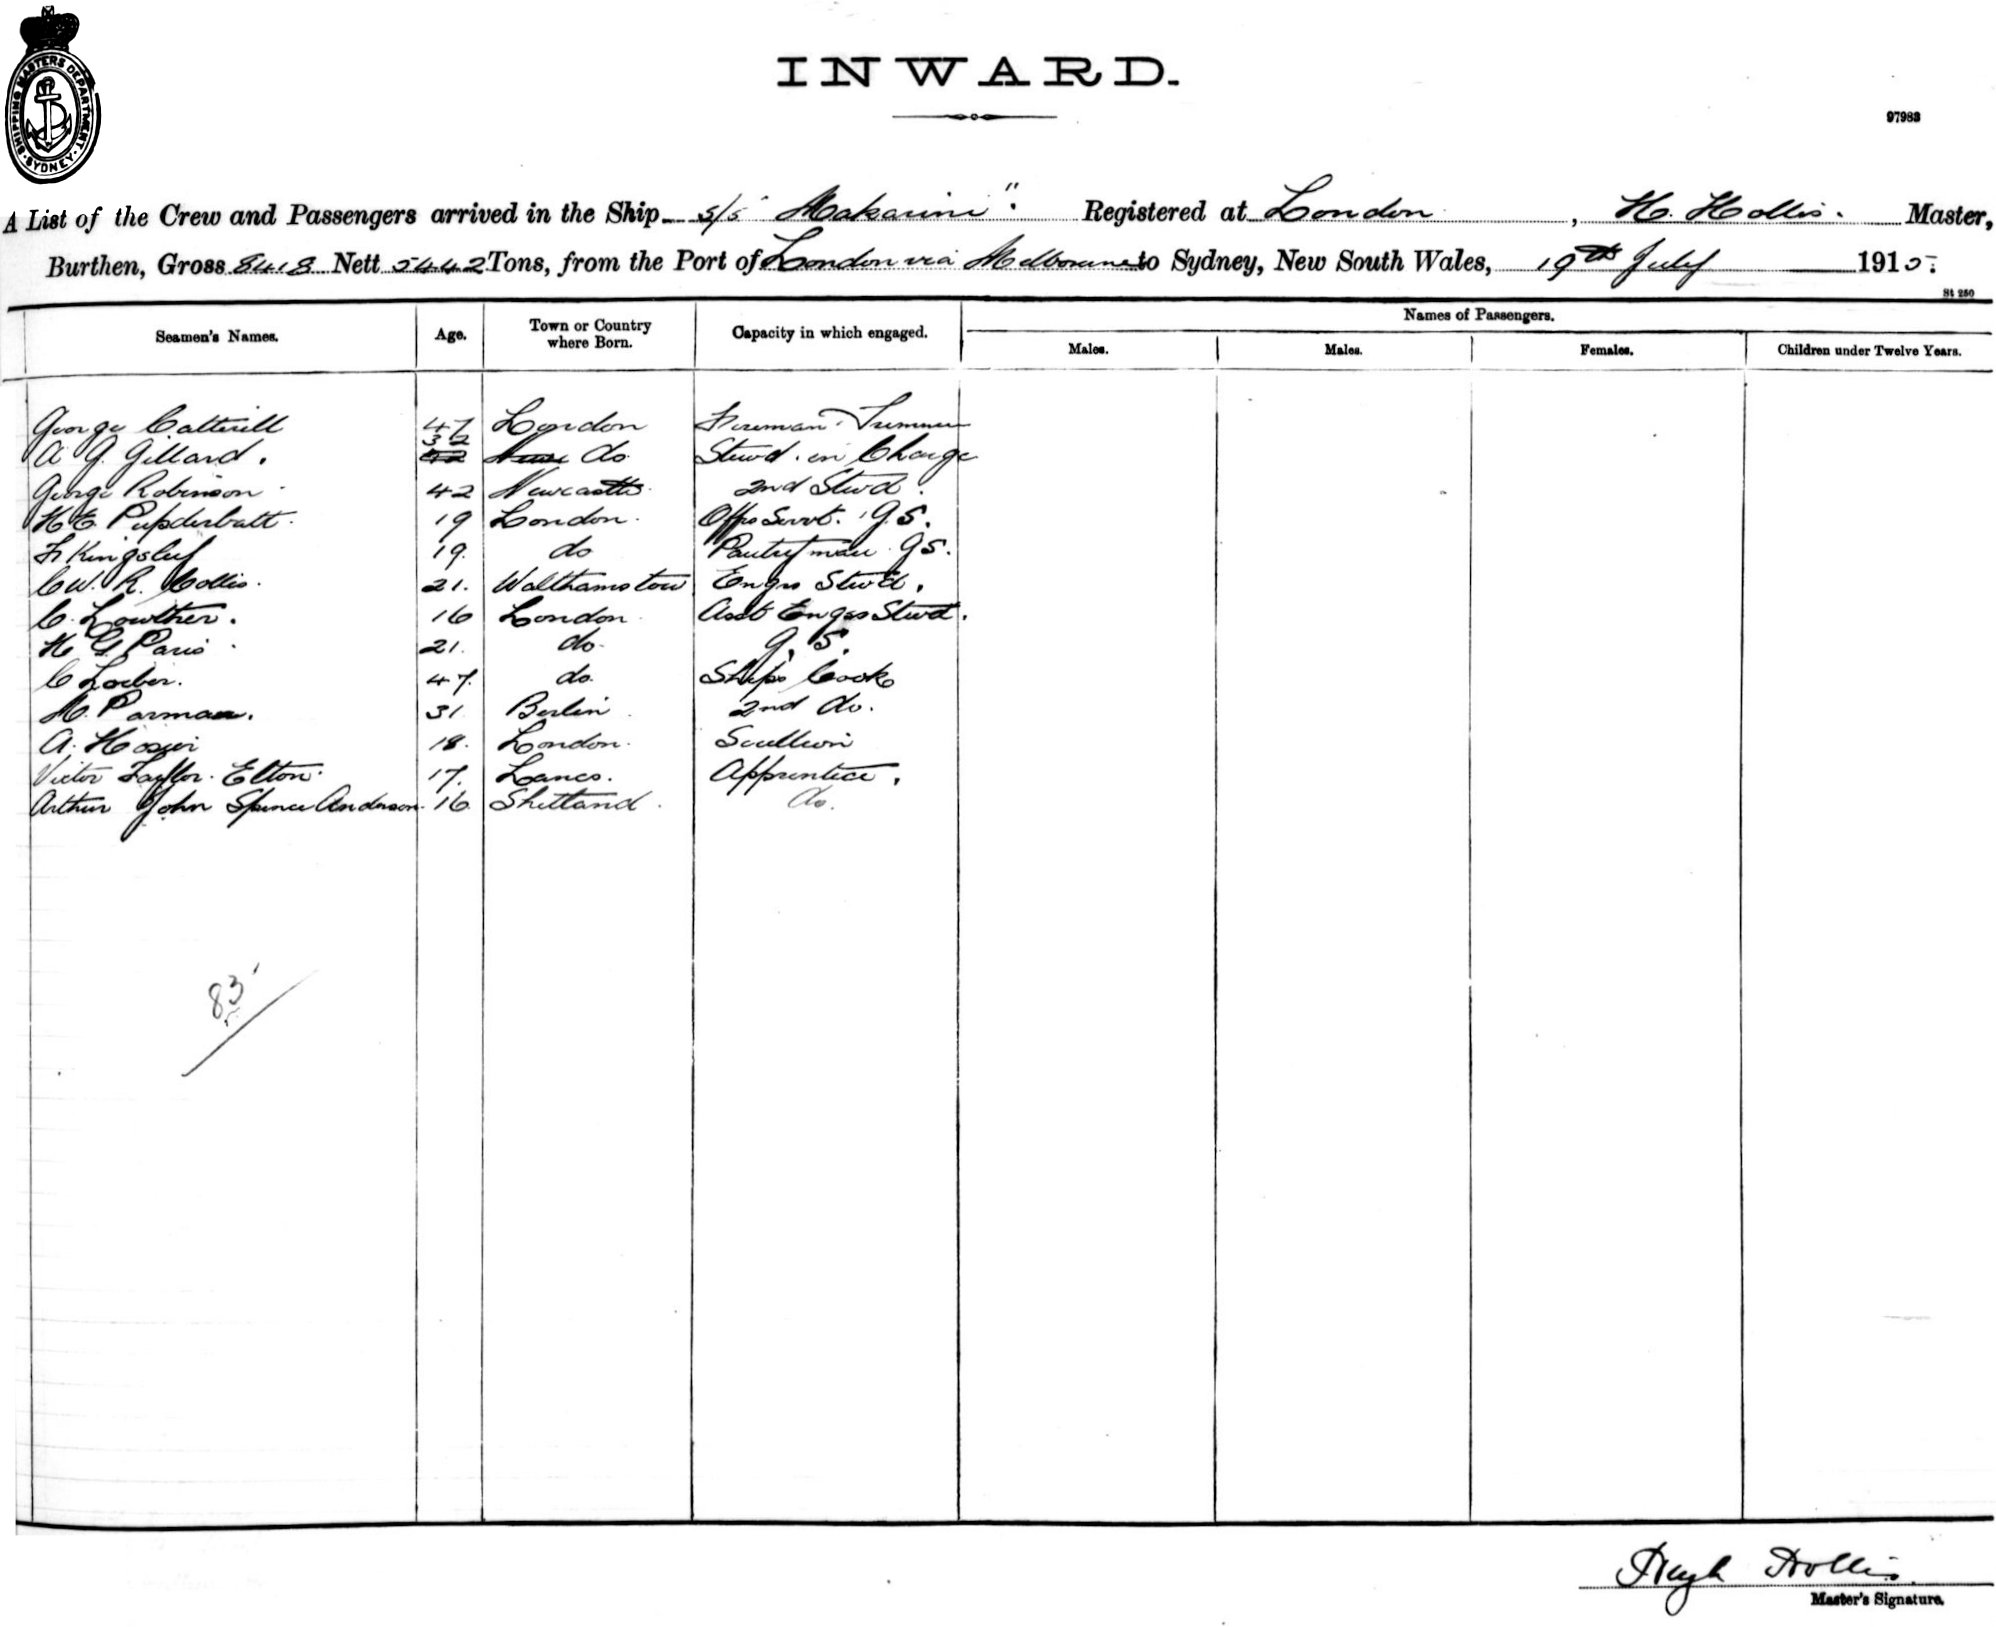 SHIPPING MASTERS DEPARTMENT. SYDNEY.
INWARD.
97983
A List of the Crew and Passengers arrived in the Ship s/s "Makarini". Registered at London, H. Hollis. Master,
Burthen, Gross 8418 Nett 5442 Tons, from the Port of London via Melbourne to Sydney, New South Wales, 19th July 1915.
St 250
Seamen's Names. Age. Town or Country where Born. Capacity in which engaged. Names of Passengers.
Males. Males. Females. Children under Twelve Years.
George Catterill 47 London Fireman & Trimmer
A G. Gillard. 32 do Stewd. in Charge
George Robinson 42 Newcastle 2nd Stwd.
H E. 19 London. Offrs Servt. G.S.
F Kingsley 19. do Pantryman G.S.
C W. R. Collis. 21. Walthamstow Engrs Stwd.
C. Lowther. 16 London Asst Engrs Stwd.
H G Paris 21. do. G. S.
C Loeber. 47. do. Ships Cook
M. Parman. 31 Berlin 2nd do.
A. Hosier 18. London. Scullion
Victor Taylor. Elton. 17. Lancs. Apprentice.
Arthur John Spence Anderson. 16 Shetland. do.
83
Hugh Hollis.
Master's Signature.